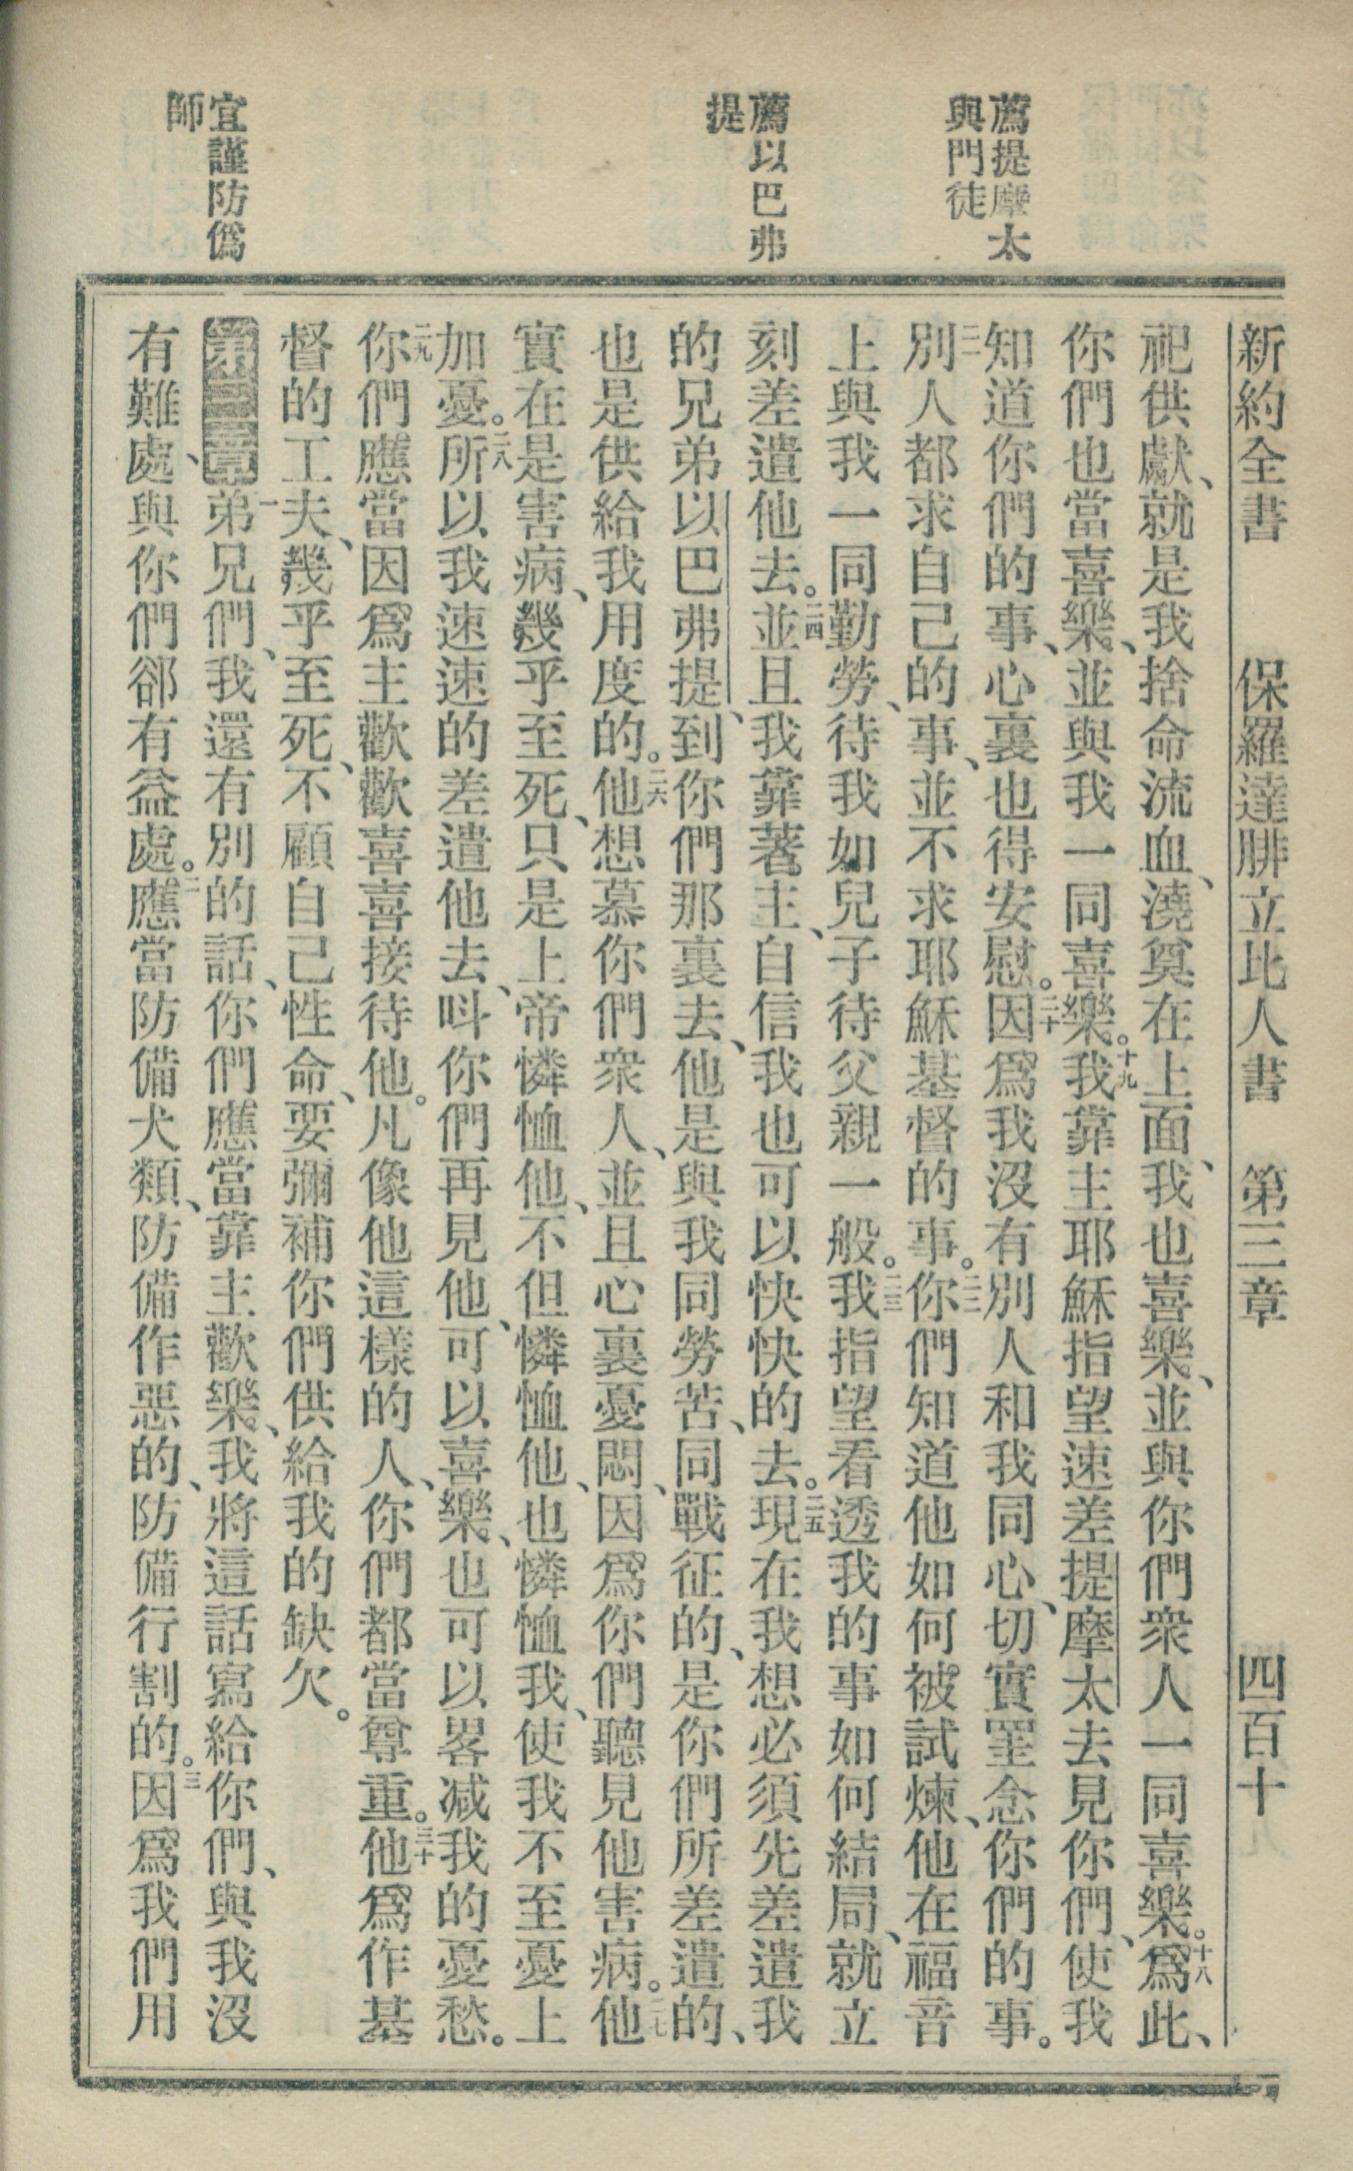 新約全書 保羅達腓立比人書 第三章 四百十
薦提摩太
與門徒
薦以巴弗
提
宜謹防僞
師
祀供獻、就是我捨命流血、澆奠在上面、我也喜樂、並與你們衆人一同喜樂。十八爲此、
你們也當喜樂、並與我一同喜樂。十九我靠主耶穌指望速差提摩太去見你們、使我
知道你們的事、心裏也得安慰。二十因爲我沒有別人和我同心、切實罣念你們的事。
二一別人都求自己的事、並不求耶穌基督的事。二二你們知道他如何被試煉、他在福音
上與我一同勤勞、待我如兒子待父親一般。二三我指望看透我的事如何結局、就立
刻差遣他去。二四並且我靠著主、自信我也可以快快的去。二五現在我想必須先差遣我
的兄弟以巴弗提、到你們那裏去、他是與我同勞苦、同戰征的、是你們所差遣的、
也是供給我用度的。二六他想慕你們衆人、並且心裏憂悶、因爲你們聽見他害病。二七他
實在是害病、幾乎至死、只是上帝憐恤他、不但憐恤他、也憐恤我、使我不至憂上
加憂。二八所以我速速的差遣他去、呌你們再見他、可以喜樂、也可以畧减我的憂愁。
二九你們應當因爲主歡歡喜喜接待他。凡像他這樣的人、你們都當尊重。三十他爲作基
督的工夫、幾乎至死、不顧自己性命、要彌補你們供給我的缺欠。
第三章一弟兄們、我還有別的話、你們應當靠主歡樂、我將這話寫給你們、與我沒
有難處、與你們卻有益處。二應當防備犬類、防備作惡的、防備行割的。三因爲我們用